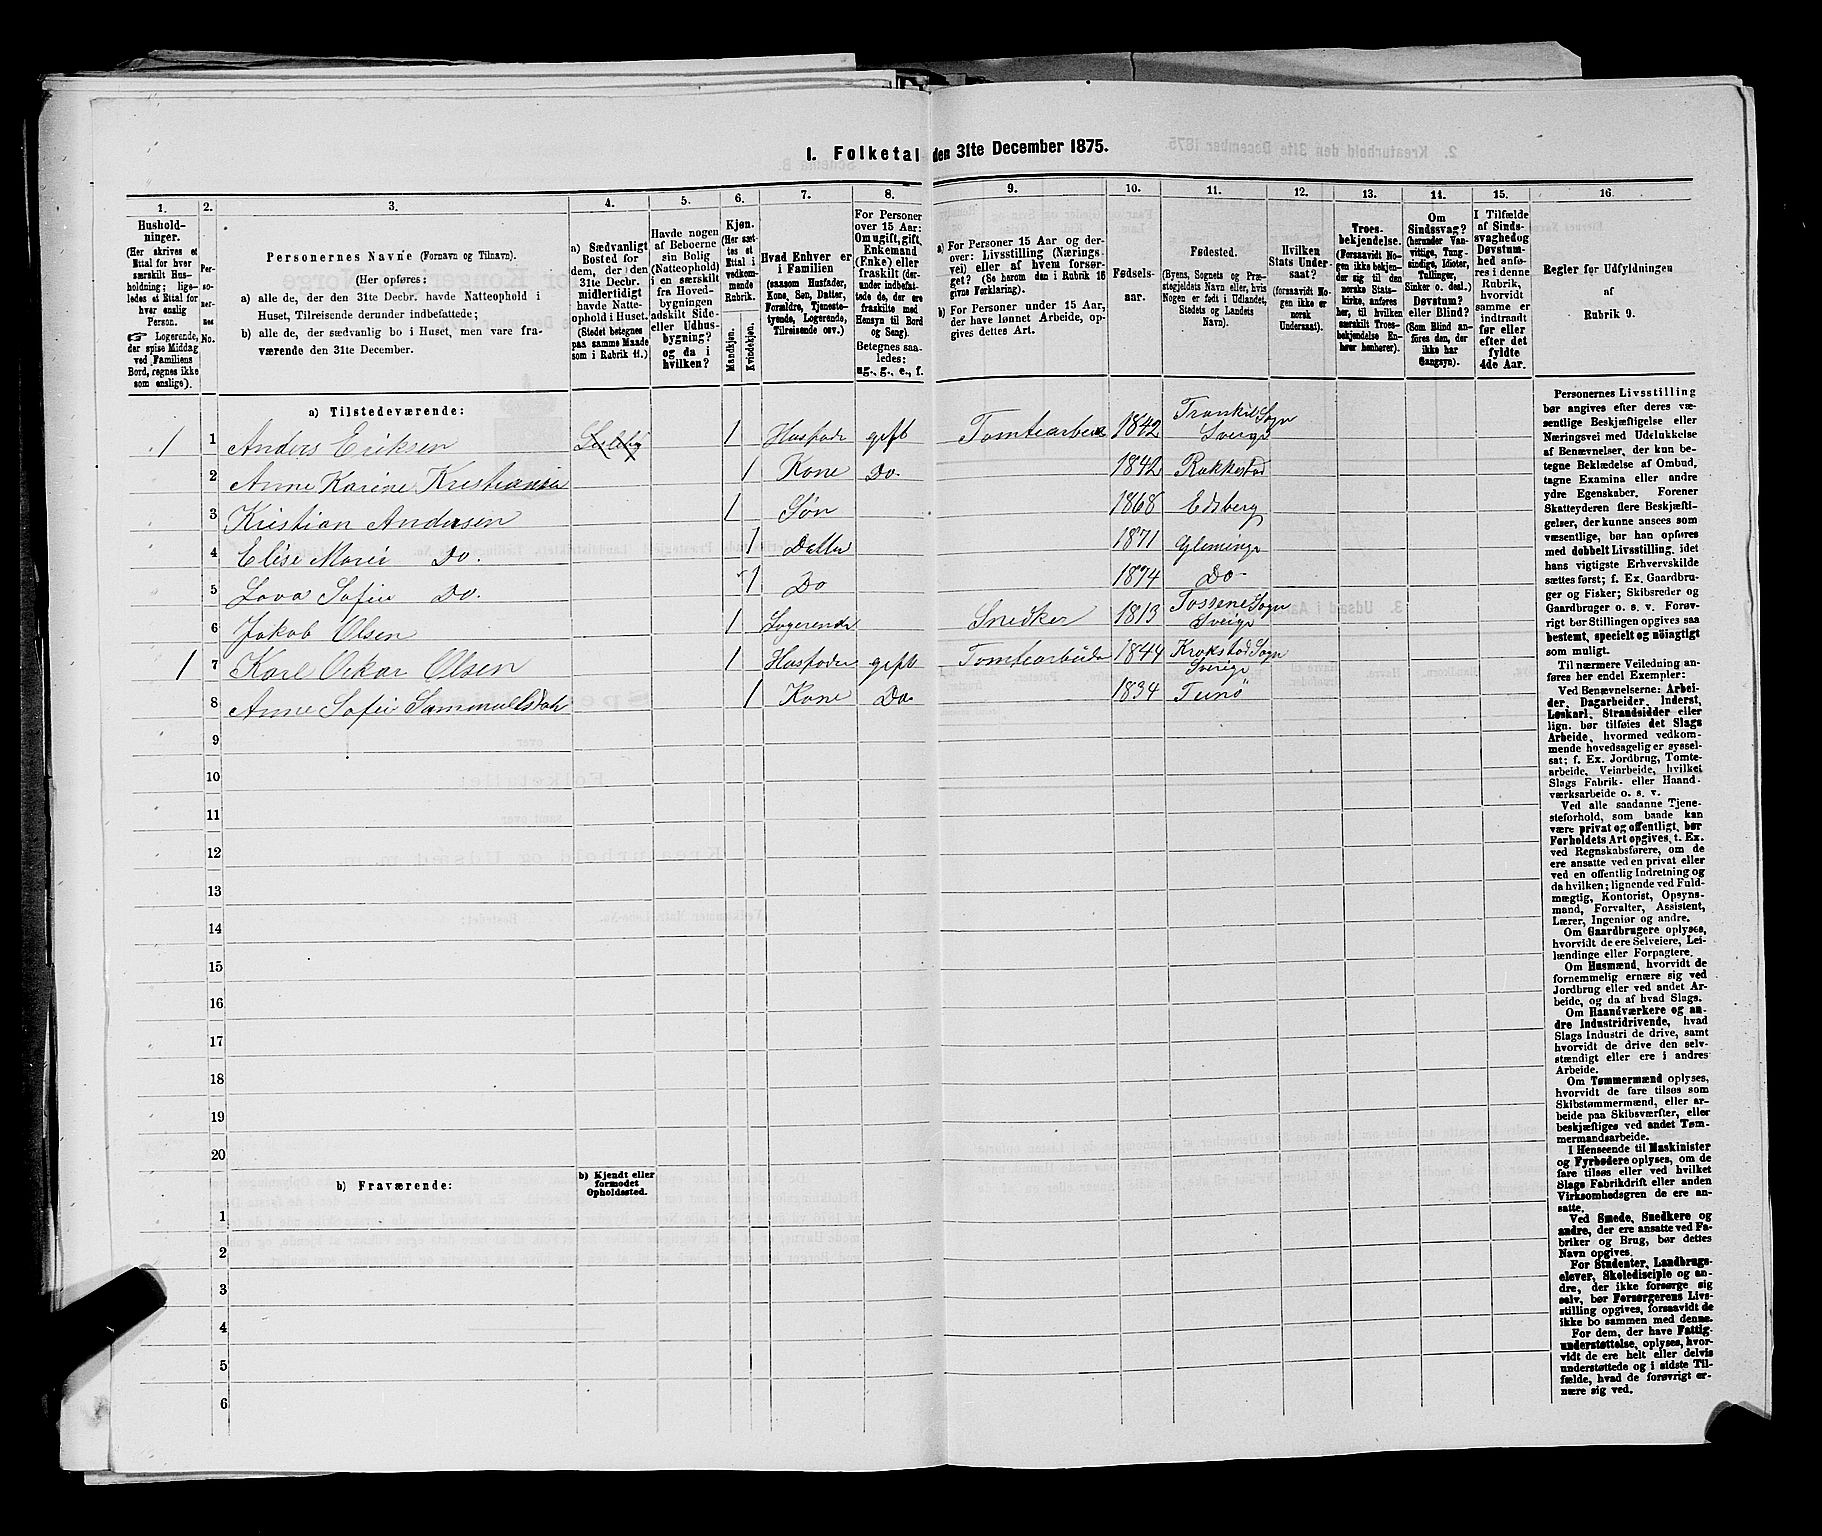 I. Folketal den 31te December 1875.
1. 2. 3. 4. 5. 6. 7. 8. 9. 10. 11. 12. 13. 14. 15. 16.
Hushold-
ninger.
(Her skrives et
Ettal for hver
særskilt Hus-
holdning; lige-
ledes et Ettal for
hver enslig
Person.
☞ Logerende,
der spise Middag
ved Familiens
Bord, regnes ikke
som enslige).
Per-
soner-
nes
No.
Personernes Navne (Fornavn og Tilnavn).
(Her opføres:
a) alle de, der den 31te Decbr. havde Natteophold i
Huset, Tilreisende derunder indbefattede;
b) alle de, der sædvanlig bo i Huset, men vare fra-
værende den 31te December.
a) Sædvanligt
Bosted for
dem, der den
31te Decbr.
midlertidigt
havde Natte-
ophold i Huset.
(Stedet betegnes
paa samme Maade
som i Rubrik 11.)
Havde nogen
af Beboerne
sin Bolig
(Natteophold)
i en særskilt
fra Hoved-
bygningen
adskilt Side-
eller Udhus-
bygning?
og da i
hvilken?
Kjøn.
(Her sæt-
tes et
Ettal i
vedkom-
mende
Rubrik.
Mandkjøn.
Kvindekjøn.
Hvad Enhver er
i Familien
(saasom Husfader,
Kone, Søn, Datter,
Forældre, Tjeneste-
tyende, Logerende,
Tilreisende osv.)
For Personer
over 15 Aar:
Om ugift, gift,
Enkemand
(Enke) eller
fraskilt (der-
under indbefat-
tede de, der ere
fraskilte med
Hensyn til Bord
og Seng).
Betegnes saa-
ledes:
ug., g., e., f.
a) For Personer 15 Aar og der-
over: Livsstilling (Nærings-
vei) eller af hvem forsør-
get? (Se herom den i Rubrik 16
givne Forklaring).
b) For Personer under 15 Aar,
der have lønnet Arbeide, op-
gives dettes Art.
Fødsels-
aar.
Fødested.
(Byens, Sognets og Præ-
stegjeldets Navn eller, hvis
Nogen er født i Udlandet,
Stedets og Landets
Navn).
Hvilken
Stats Under-
saat?
(forsaavidt No-
gen ikke er
norsk
Undersaat).
Troes-
bekjendelse.
(Forsaavidt No-
gen ikke bekjen-
der sig til den
norske Stats-
kirke, anføres
her, til hvilken
særskilt Troes-
bekjendelse En-
hver henhører).
Om
Sindssvag?
(herunder Van-
vittige, Tung-
sindige, Idioter,
Tullinger,
Sinker o. desl.)
Døvstum?
eller Blind?
(Som Blind an-
føres den, der
ikke har
Gangsyn).
I Tilfælde
af Sinds-
svaghed og
Døvstum-
hed anfø-
res i denne
Rubrik,
hvorvidt
samme er
indtraadt
før eller
efter det
fyldte
4de Aar.
Regler for Udfyldningen
af
Rubrik 9.
a) Tilstedeværende:
1 1 Anders Eriksen 1 Husfader gift Tomtearbeider 1842 Trankil Sogn Sverige
2 Anne Karine Kristiansen 1 Kone Do. 1842 Rakkestad
3 Kristian Andersen 1 Søn 1868 Edsberg
4 Elise Marie Do. 1 Datter 1871 Gleminge
5 Lova Sofie Do. 1 Do 1874 Do
6 Jakob Olsen 1 Logerende Snedker 1813 Tossene Sogn Sverige
1 7 Karl Oskar Olsen 1 Husfader gift Tomtearbeider 1844 Krokstad Sogn Sverige
8 Anne Sofie Sammuelsdatr 1 Kone Do 1834 Tunø
9
10
11
12
13
14
15
16
17
18
19
20
b) Fraværende:
b) Kjendt eller
formodet
Opholdssted.
1
2
3
4
5
6
Personernes Livsstilling
bør angives efter deres væ-
sentlige Beskjæftigelse eller
Næringsvei med Udelukkelse
af Benævnelser, der kun be-
tegne Beklædelse af Ombud,
tagne Examina eller andre
ydre Egenskaber. Forener
Skatteyderen flere Beskjæfti-
gelser, der kunne ansees som
væsentlige, bør han opføres
med dobbelt Livsstilling, idet
hans vigtigste Erhvervskilde
sættes først; f. Ex. Gaardbru-
ger og Fisker; Skibsreder og
Gaardbruger o. s. v. Forøv-
rigt bør Stillingen opgives saa
bestemt, specielt og nøiagtigt
som muligt.
Til nærmere Veiledning an-
føres her endel Exempler:
Ved Benævnelserne: Arbei-
der, Dagarbeider, Inderst,
Løskarl, Strandsidder eller
lign. bør tilføies det Slags
Arbeide, hvormed vedkom-
mende hovedsagelig er syssel-
sat; f. Ex. Jordbrug, Tomte-
arbeide, Veiarbeide, hvilket
Slags Fabrik- eller Haand-
værksarbeide o. s. v.
Ved alle saadanne Tjene-
steforhold, som baade kan
være privat og offentligt, bør
Forholdets Art opgives, t. Ex.
ved Regnskabsførere, om de
ere ansatte ved en privat eller
ved en offentlig Indretning og
da hvilken; lignende ved Fuld-
mægtig, Kontorist, Opsyns-
mand, Forvalter, Assistent,
Lærer, Ingeniør og andre.
Om Gaardbrugere oplyses,
hvorvidt de ere Selveiere, Lei-
lændinge eller Forpagtere.
Om Husmænd, hvorvidt de
fornemmelig ernære sig ved
Jordbrug eller ved andet Ar-
beide, og da af hvad Slags.
Om Haandværkere og an-
dre Industridrivende, hvad
Slags Industri de drive, samt
hvorvidt de drive den selv-
stændigt eller ere i andres
Arbeide.
Om Tømmermænd oplyses,
hvorvidt de fare tilsøs som
Skibstømmermænd, eller ar-
beide paa Skibsværfter, eller
beskjæftiges ved andet Tøm-
mermandsarbeide.
I Henseende til Maskinister
og Fyrbødere oplyses, om de
fare tilsøs eller ved hvilket
Slags Fabrikdrift eller anden
Virksomhedsgren de ere an-
satte.
Ved Smede, Snedkere og
andre, der ere ansatte ved Fa-
briker og Brug, bør dettes
Navn opgives.
For Studenter, Landbrugs-
elever, Skoledisciple og an-
dre, der ikke forsørge sig
selv, bør Forsørgerens Livs-
stilling opgives, forsaavidt de
ikke bo sammen med denne.
For dem, der have Fattig-
understøttelse, oplyses, hvor-
vidt de ere helt eller delvis
understøttede og i sidste Til-
fælde, hvad de forøvrigt er-
nære sig ved.